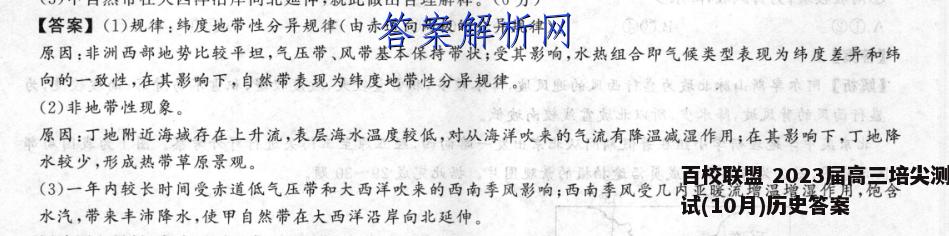 (3)甲自然带在大西洋沿岸向北延伸,就此做出合理解释。(6分)
【答案】(1)规律:纬度地带性分异规律(由赤道向两极的分异规律)
答案解析网
原因:非洲西部地势比较平坦,气压带、风带基本保持带状;受其影响,水热组合即气候类型表现为纬度差异和纬
向的一致性,在其影响下,自然带表现为纬度地带性分异规律。
(2)非地带性现象。
原因:丁地附近海域存在上升流,表层海水温度较低,对从海洋吹来的气流有降温减湿作用;在其影响下,丁地降
水较少,形成热带草原景观。
(3)一年内较长时间受赤道低气压带和大西洋吹来的西南季风影响;西南季风受几内亚暖流增温增湿作用,饱含
水汽,带来丰沛降水,使甲自然带在大西洋沿岸向北延伸。
百校联盟 2023届高三培尖测
试(10月)历史答案